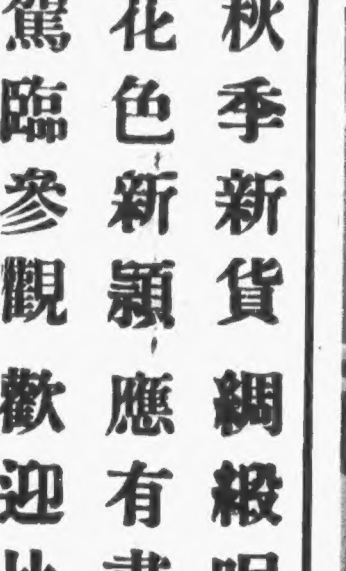 秋季新貨綢緞呢
花色新穎應有盡
駕臨參觀歡迎